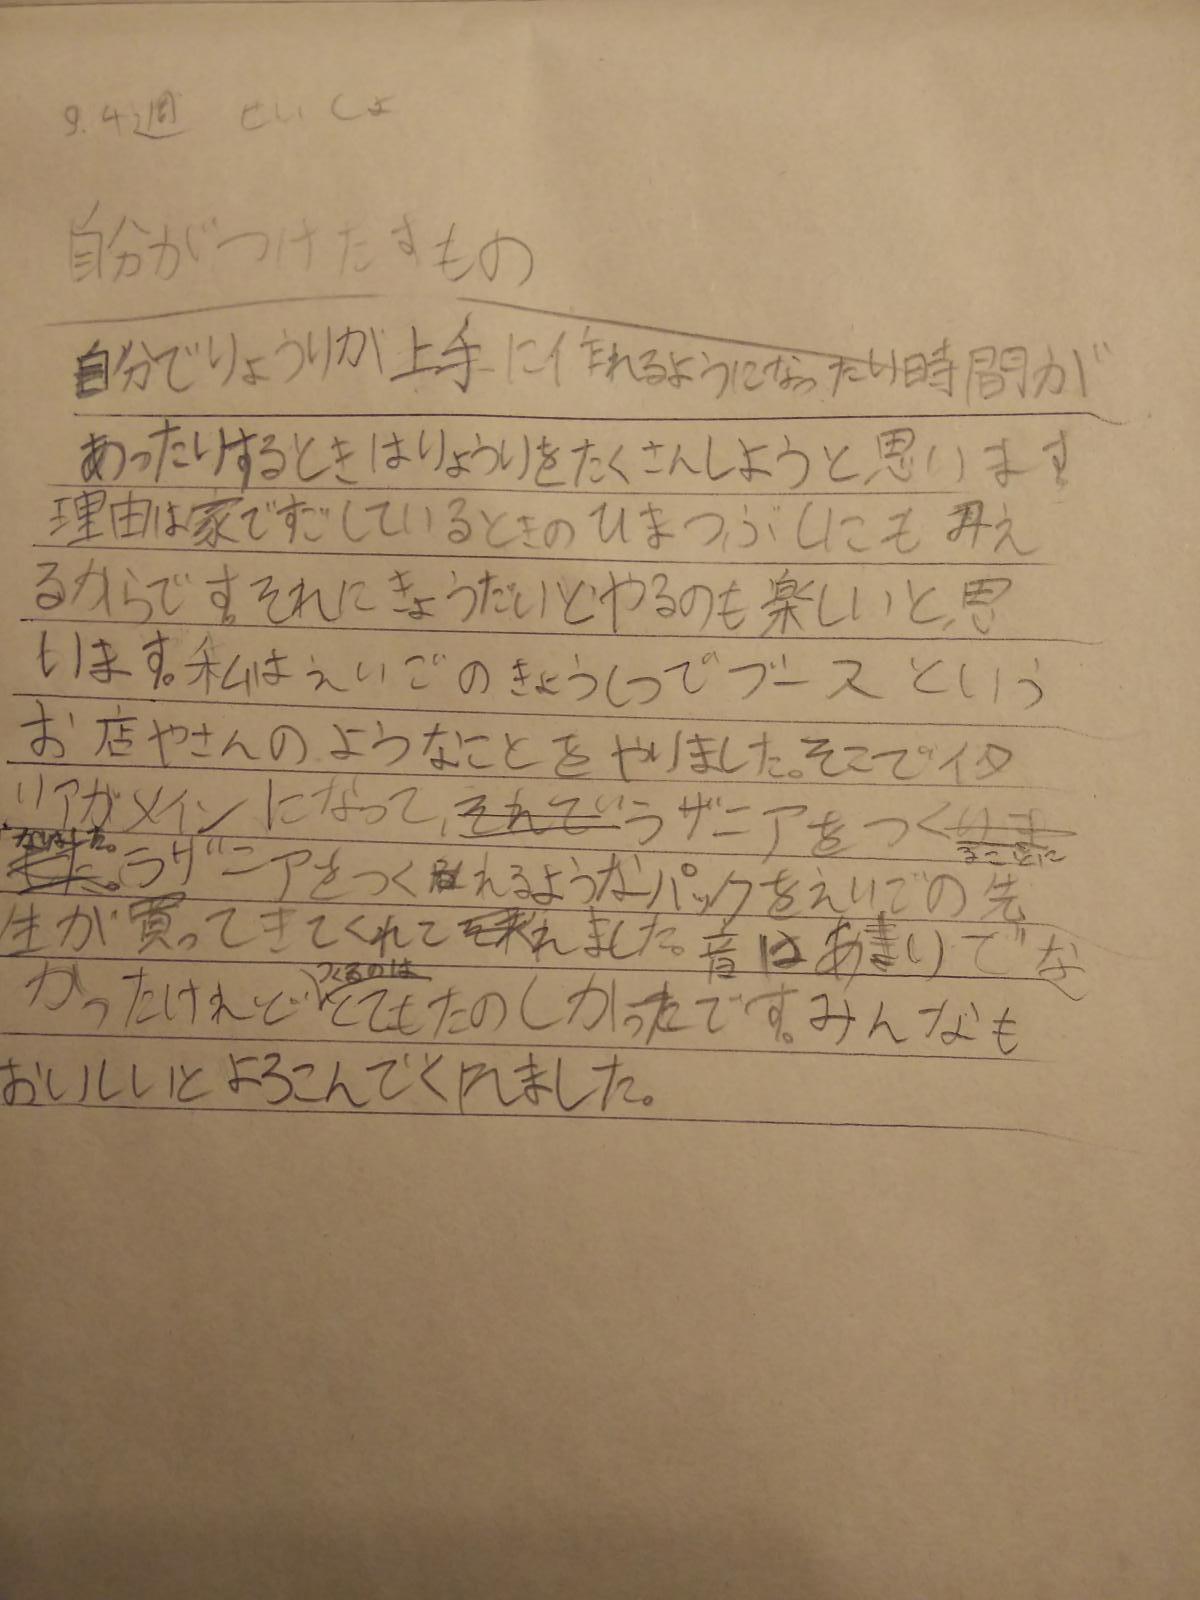 9.4週 せいしょ
自分がつけたすもの
自分でりょうりが上手に作れるようになったり時間が
あったりするときはりょうりをたくさんしようと思います
理由は家ですごしているときのひまつぶしにも
るからです。それにきょうだいとやるのも楽しいと思
います。私はえいごのきょうしつでブースという
お店やさんのようなことをやりました。そこでイタ
リアがメインになって、それでラザニアをつくりま
ることに
なりました。
した。ラザニアをつくれるようなパックをえいごの先
生が買ってきてくれて れました。 はあまりでな
つくるのは
かったけれどとてもたのしかったです。みんなも
おいしいとよろこんでくれました。